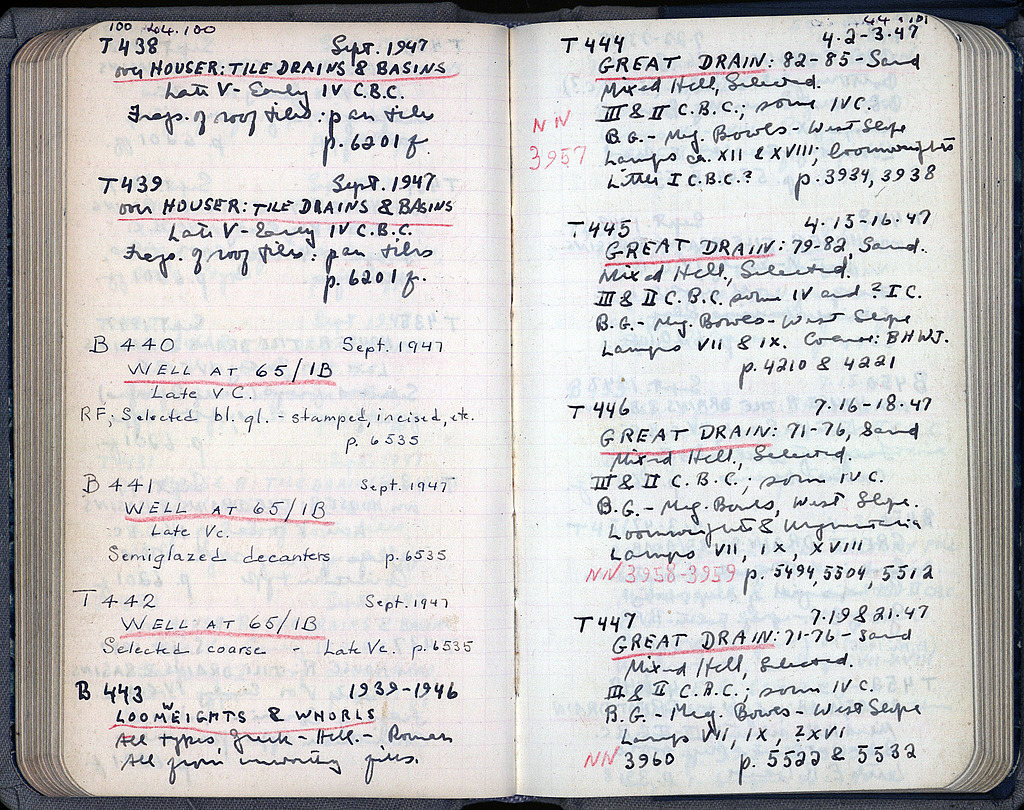 100 44.100
T 438 Sept. 1947
over HOUSER: TILE DRAINS & BASINS
Late V - Early IV C.B.C.
Frags. of roof tiles: pan tiles
p. 6201 f.
T 439 Sept. 1947
over HOUSER: TILE DRAINS & BASINS
Late V - Early IV C.B.C.
Frags. of roof tiles: pan tiles
p. 6201 f.
B 440 Sept. 1947
WELL AT 65/1B
Late V C.
RF; Selected bl. gl. - stamped, incised, etc.
p. 6535
B 441 Sept. 1947
WELL AT 65/1B
Late Vc.
Semiglazed decanters p. 6535
T 442 Sept. 1947
WELL AT 65/1B
Selected coarse - Late Vc. p. 6535
B 443 1939-1946
LOOMWEIGHTS & WHORLS
All types, Greek - Hell. - Roman
All from
44.101
T 444 4-2-3-47
GREAT DRAIN: 82-85 - Sand
Mixed Hell, Selected.
III & II C.B.C.; some IV C.
NN B.G. - Meg. Bowls - West Slope
3957 Lamps ca. XII & XVIII, loomweights
Little I C.B.C.? p. 3934, 3938
T 445 4-15-16-47
GREAT DRAIN: 79-82, Sand.
Mixed Hell, Selected!
III & II C.B.C. some IV and ? I C.
B.G. - Meg. Bowls - West Slope
Lamps VII & IX. Coarse:
p. 4210 & 4221
T 446 7-16-18-47
GREAT DRAIN: 71-76, Sand
Mixed Hell, Selected.
III & II C.B.C.; some IV C.
B.G. - Meg. Bowls, West Slope.
Loomweights & Unguentaria
Lamps VII, IX, XVIII
NN 3958-3959 p. 5494, 5504, 5512
T 447 7-19 & 21-47
GREAT DRAIN: 71-76 - Sand
Mixed Hell, Selected.
III & II C.B.C.; some IV C.
B.G. - Meg. Bowls - West Slope
Lamps VII, IX, ? XVI
NN 3960 p. 5522 & 5532